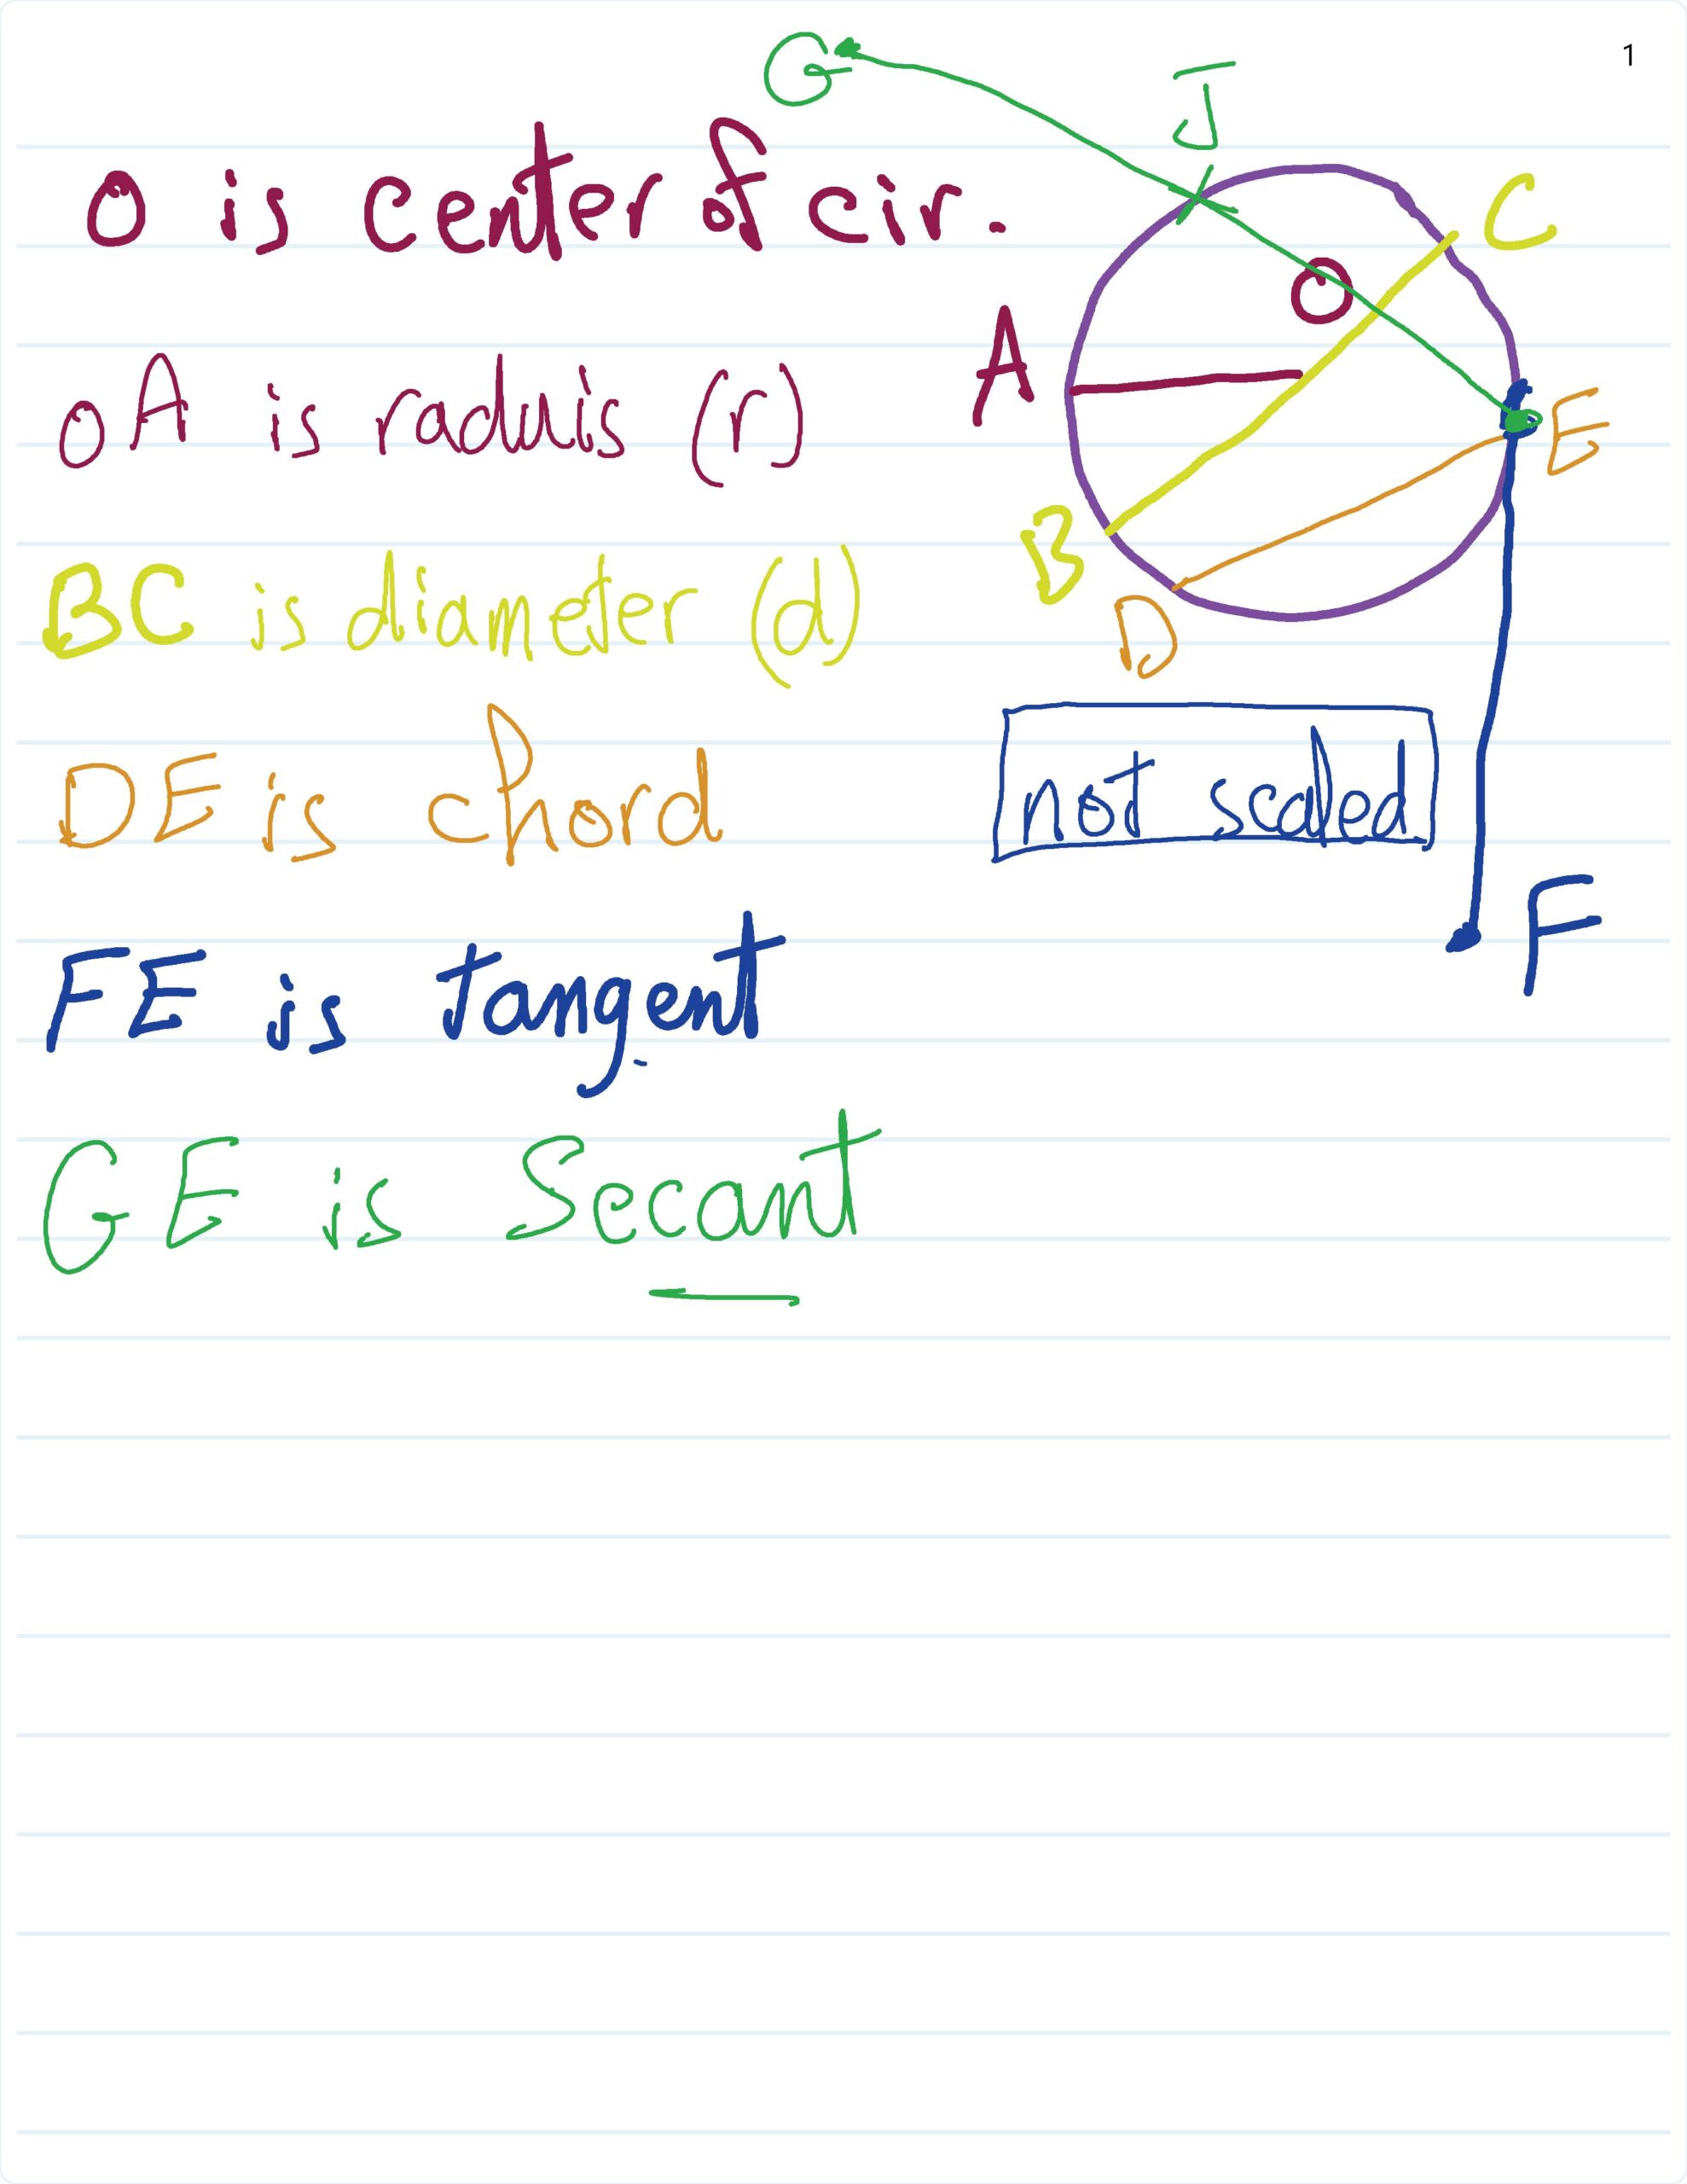 1
G
J
O is center of cir.
C
O
A
OA is radius (r)
E
B
BC is diameter (d)
D
DE is chord
not scaled
F
FE is tangent
GE is Secant